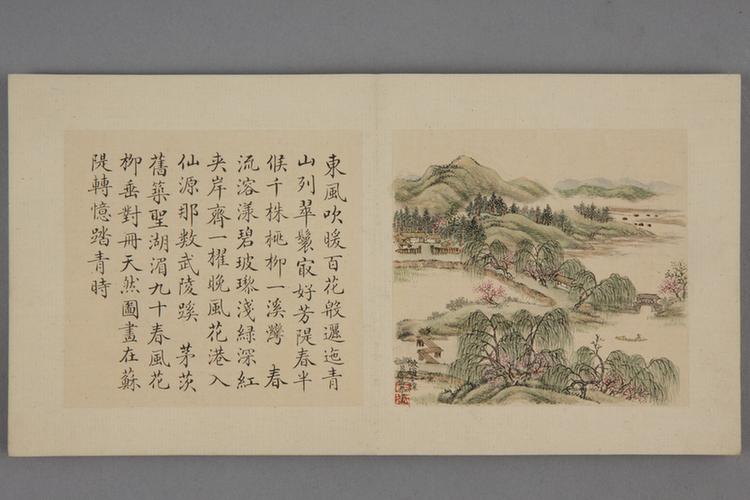 東風吹暖百花殷邐迤青
山列翠鬟㝡好芳隄春半
候千株桃柳一溪灣 春
流溶漾碧玻瓈淺綠深紅
夾岸齊一櫂晚風花港入
仙源那數武陵蹊 茅茨
舊築聖湖湄九十春風花
柳垂對冊天然圖畫在蘇
隄轉憶踏青時